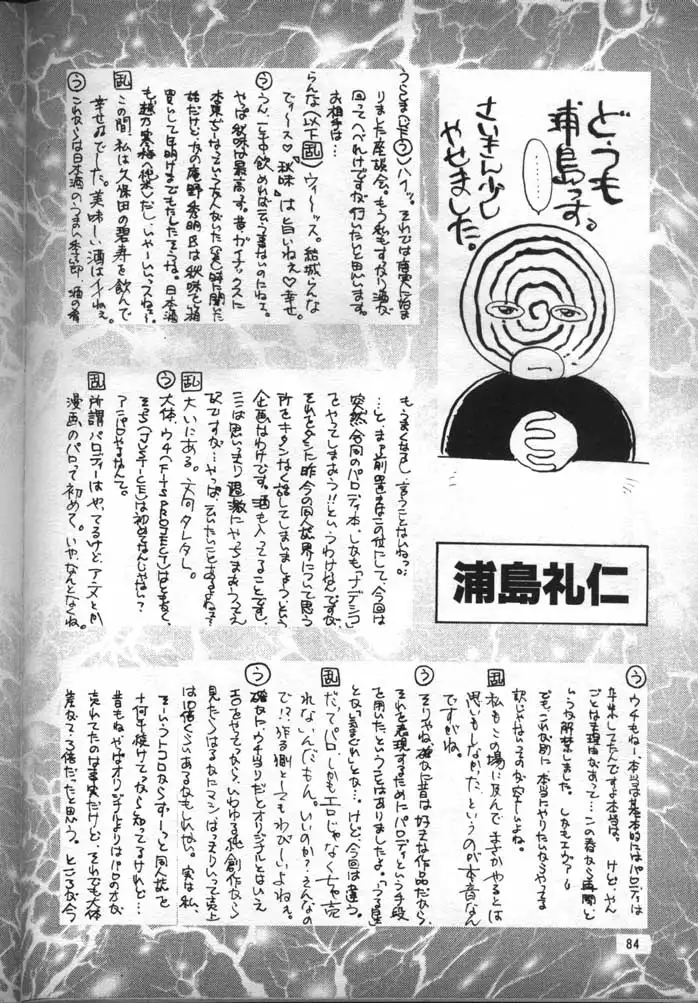 どうも
浦島っす。
…………
さいきん少し
やせました。
浦島礼仁
うらしま(以下う)ハイッ。それでは唐突に始ま
りました座談会。もう私もすでに酒が
回ってへべれけですが行いたいと思います。
お相手は…
らんな(以下乱)ウィーッス。結城らんな
でぃーース♡『秋味』は旨いねぇ♡幸せ。
う うん、一年中飲めれば云う事ないのにねェ。
やはり秋味は最高です。昔ガイナックスに
話だけど、かの庵野秀明氏は秋味を箱
買いして
この間、私は久保田の碧寿を飲んで
幸せぬでした。美味しい酒はイイねぇ。
う これからは日本酒のうまい季節 酒の肴
もうまくなるし、言うことないねっ。
…と、まあ前置きはこの位にして、今回は
突然今回のパロディ本、しかも「ナデシコ」
をやってしまおう!!というわけなんですが、
それを含めた昨今の同人誌界について思う
所をキタンなく話してしまいましょう、という
企画なわけです。酒も入ってることですし、
ここは思いっきり過激にやっちまおうってえ
訳ですが…やっぱ云いたいことあるよね?
乱 大いにある。文句タレタレ。
う 大体、ウチ(FITS PROJECT)はともかく、
そっち(JUSTICE)は初めてなんじゃない?
アニパロやるなんて。
乱 所謂パロディはやってるけど、アニメとか
漫画のパロって初めて。いや、なんとなくね。
う ウチもねー本当は基本的にはパロディは
卒業してたんですよ本当は。けど、やん
ごとなき理由があって…この春から再開と
いうか解禁しました。しかもエヴァ!
でも、これが別に本当にやりたいからやってる
訳じゃないってのが空しいよね。
乱 私もこの場に及んで幸かやるとは
思いもしなかった、というのが本音なん
ですがね。
う そりゃね、確かに昔は好きな作品だから、
それを表現するためにパロディという手段
を用いたということはありましたよ。「うる星」
とか「気まぐれ」とか…けど、今回は違う。
乱 だってパロ、しかもエロじゃなくちゃ売
れないんだもん。いいのか?そんなの
で!?作る側としてもわびしーいよねぇ。
う 確かにウチ当りだとオリジナルとはいえ
エロをやってるから、いわゆる純創作なら
見たらはるかにマシ。はっきりいって売上
は10倍くらいあるかもしれない。実は私、
そういうトコロならずーっと同人誌を
十何年続けてるから知ってるけれど…
昔もねやはりオリジナルよりはパロの方が
売れてたのは事実だけど、それでも大体
差なんて3倍だったと思う。ところが今
84